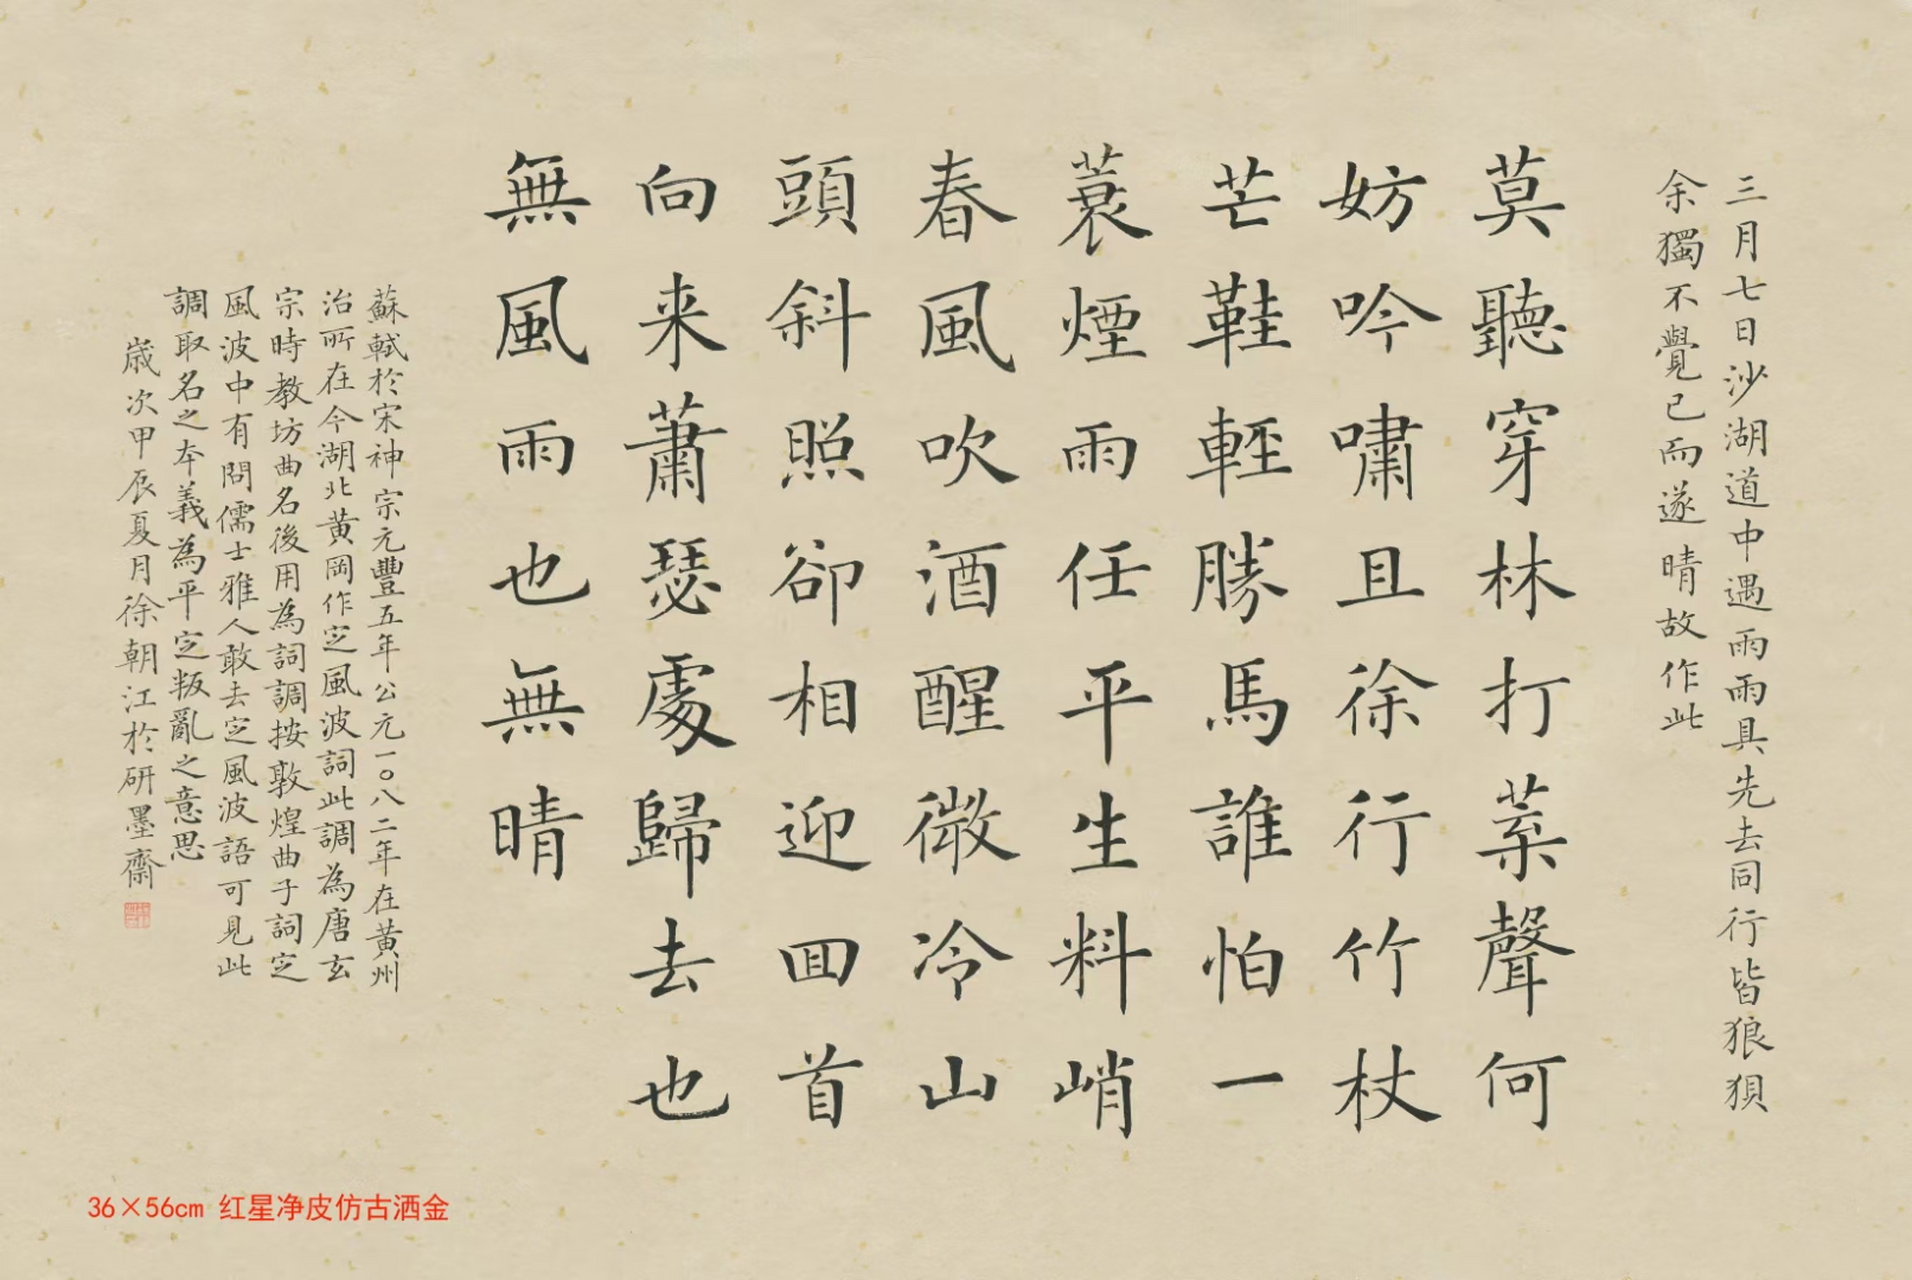 三月七日沙湖道中遇雨雨具先去同行皆狼狽
余獨不覺已而遂晴故作此
莫聽穿林打葉聲何
妨吟嘯且徐行竹杖
芒鞋輕勝馬誰怕一
蓑煙雨任平生料峭
春風吹酒醒微冷山
頭斜照卻相迎回首
向来蕭瑟處歸去也
無風雨也無晴
蘇軾於宋神宗元豐五年公元一〇八二年在黄州
治所在今湖北黄岡作定風波詞此調為唐玄
宗時教坊曲名後用為詞調按敦煌曲子詞定
風波中有問儒士雅人敢去定風波語可見此
調取名之本義為平定叛亂之意思
歲次甲辰夏月徐朝江於研墨齋
36×56cm 红星净皮仿古洒金